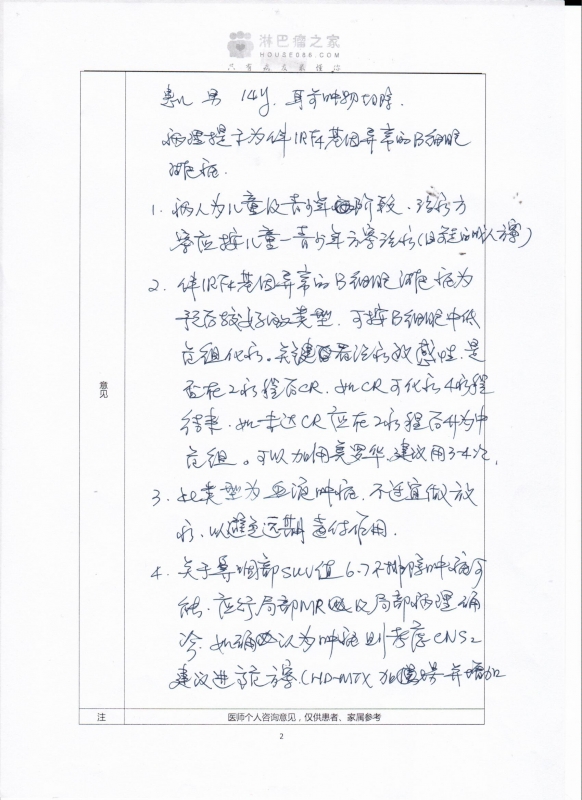 淋巴瘤之家
HOUSE086.COM
只有病友最懂你
患儿 男 14y. 耳前肿物切除.
病理提示为伴IRF4基因异常的B细胞
淋巴瘤.
1. 病人为儿童及青少年阶段、治疗方
案应按儿童-青少年方案治疗(方案)
2. 伴IRF4基因异常的B细胞淋巴瘤为
预后较好的类型. 可按B细胞中低
危组化疗。关键看治疗敏感性.是
否在2疗程后CR. 如CR可化疗4疗程
结束. 如未达CR应在2疗程后升为中
危组。可以加用美罗华.建议用3-4次.
意见
3. 此类型为血液肿瘤. 不适宜做放
疗. 以避免远期毒付作用.
4. 关于鼻咽部SUV值6.7不排除肿瘤可
能. 应行局部MR以及局部病理确
诊. 如确认为肿瘤则考虑CNS2
建议进高危方案.(HD-MTX 并增加
注
医师个人咨询意见，仅供患者、家属参考
2